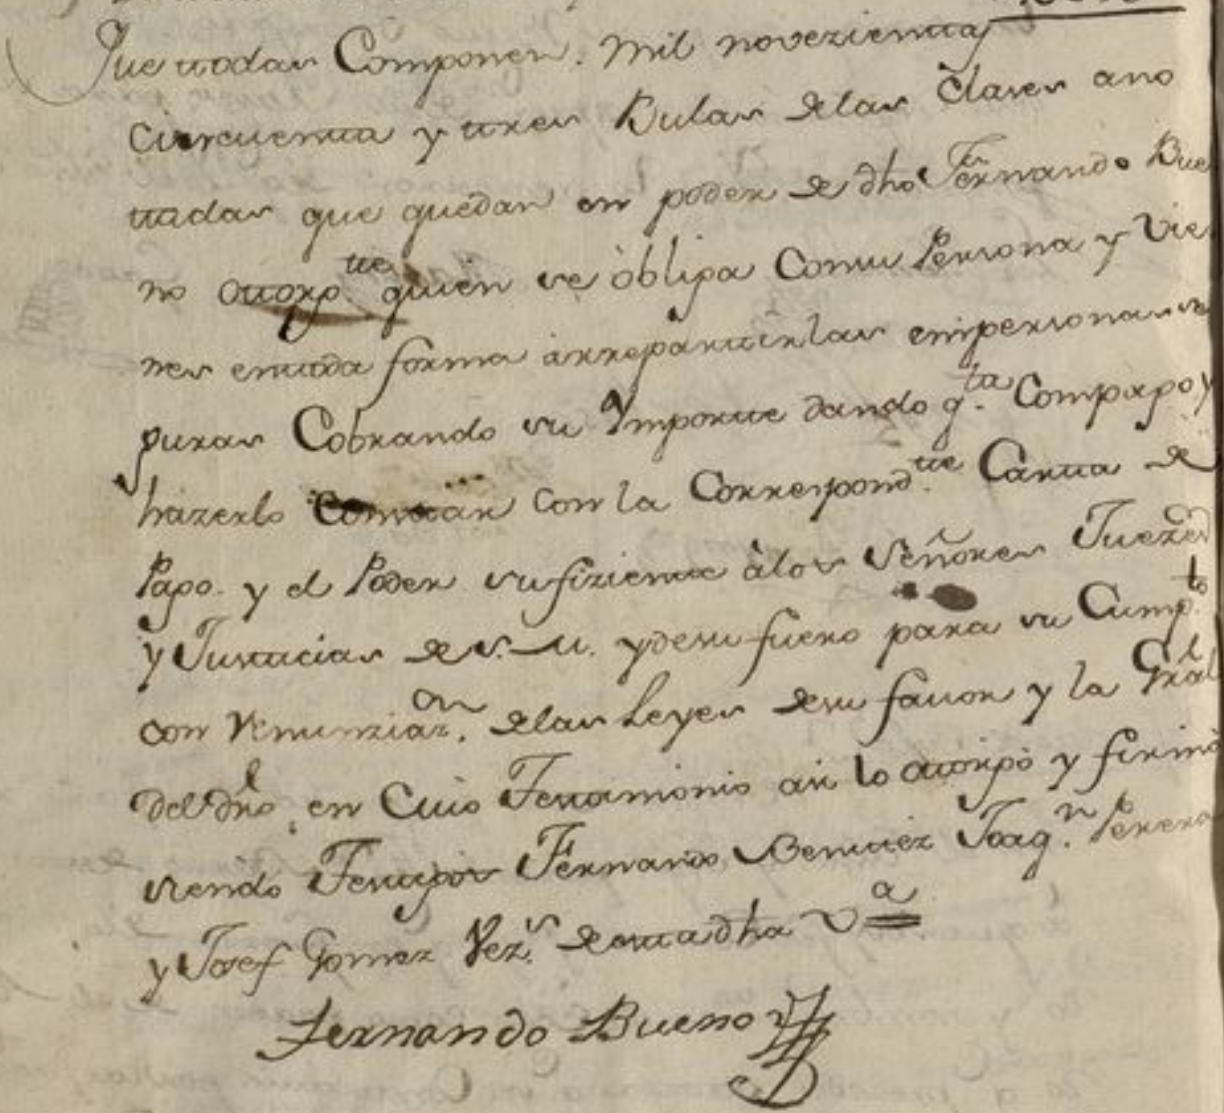 Que todas Componen. mil novezientas
cincuenta y tres Bulas delas Clases ano
tadas que quedan en poder de dho Fernando Bue
no otorg.te quien se obliga Comu Persona y Vie
nes entoda forma árrepartirlas empersonas se
guras Cobrando su Ymporte dando q.ta Compago y
hazerlo Constar con la Correspond.te Carta de
Pago. y el Poder sufiziente álos Señores Juezes
y Justicias de S. M. ydesu fuero para su Cump.to
con Renunziaz.on delas Leyes desu favor y la Gral
del dro en Cuio Testimonio asi lo otorgó y firmó
siendo Testigos Fernando Benitez Joaq.n Perera
y Josef Gomez Vez.s deesta dha V.a
Fernando Bueno